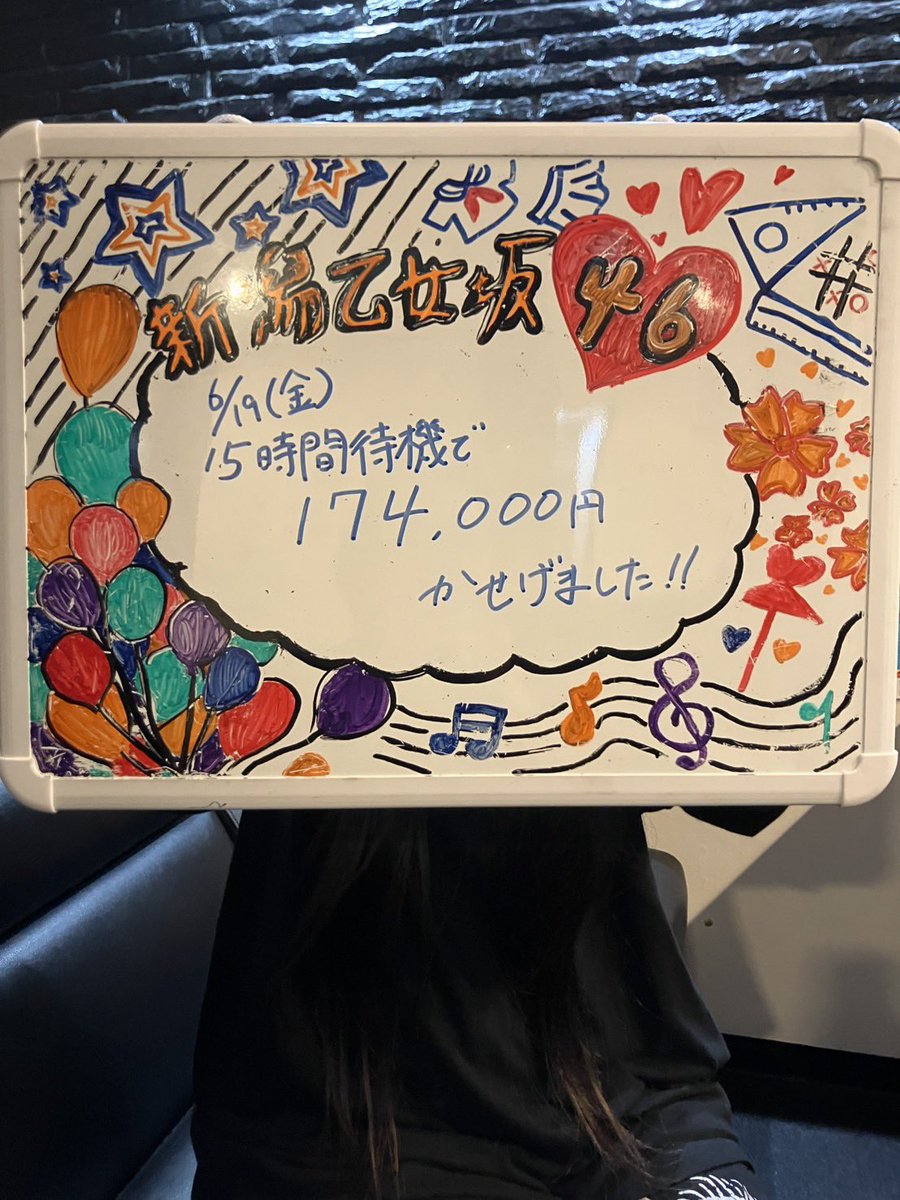 新潟乙女坂46
6/19(金)
15時間待機で
174,000円
かせげました!!